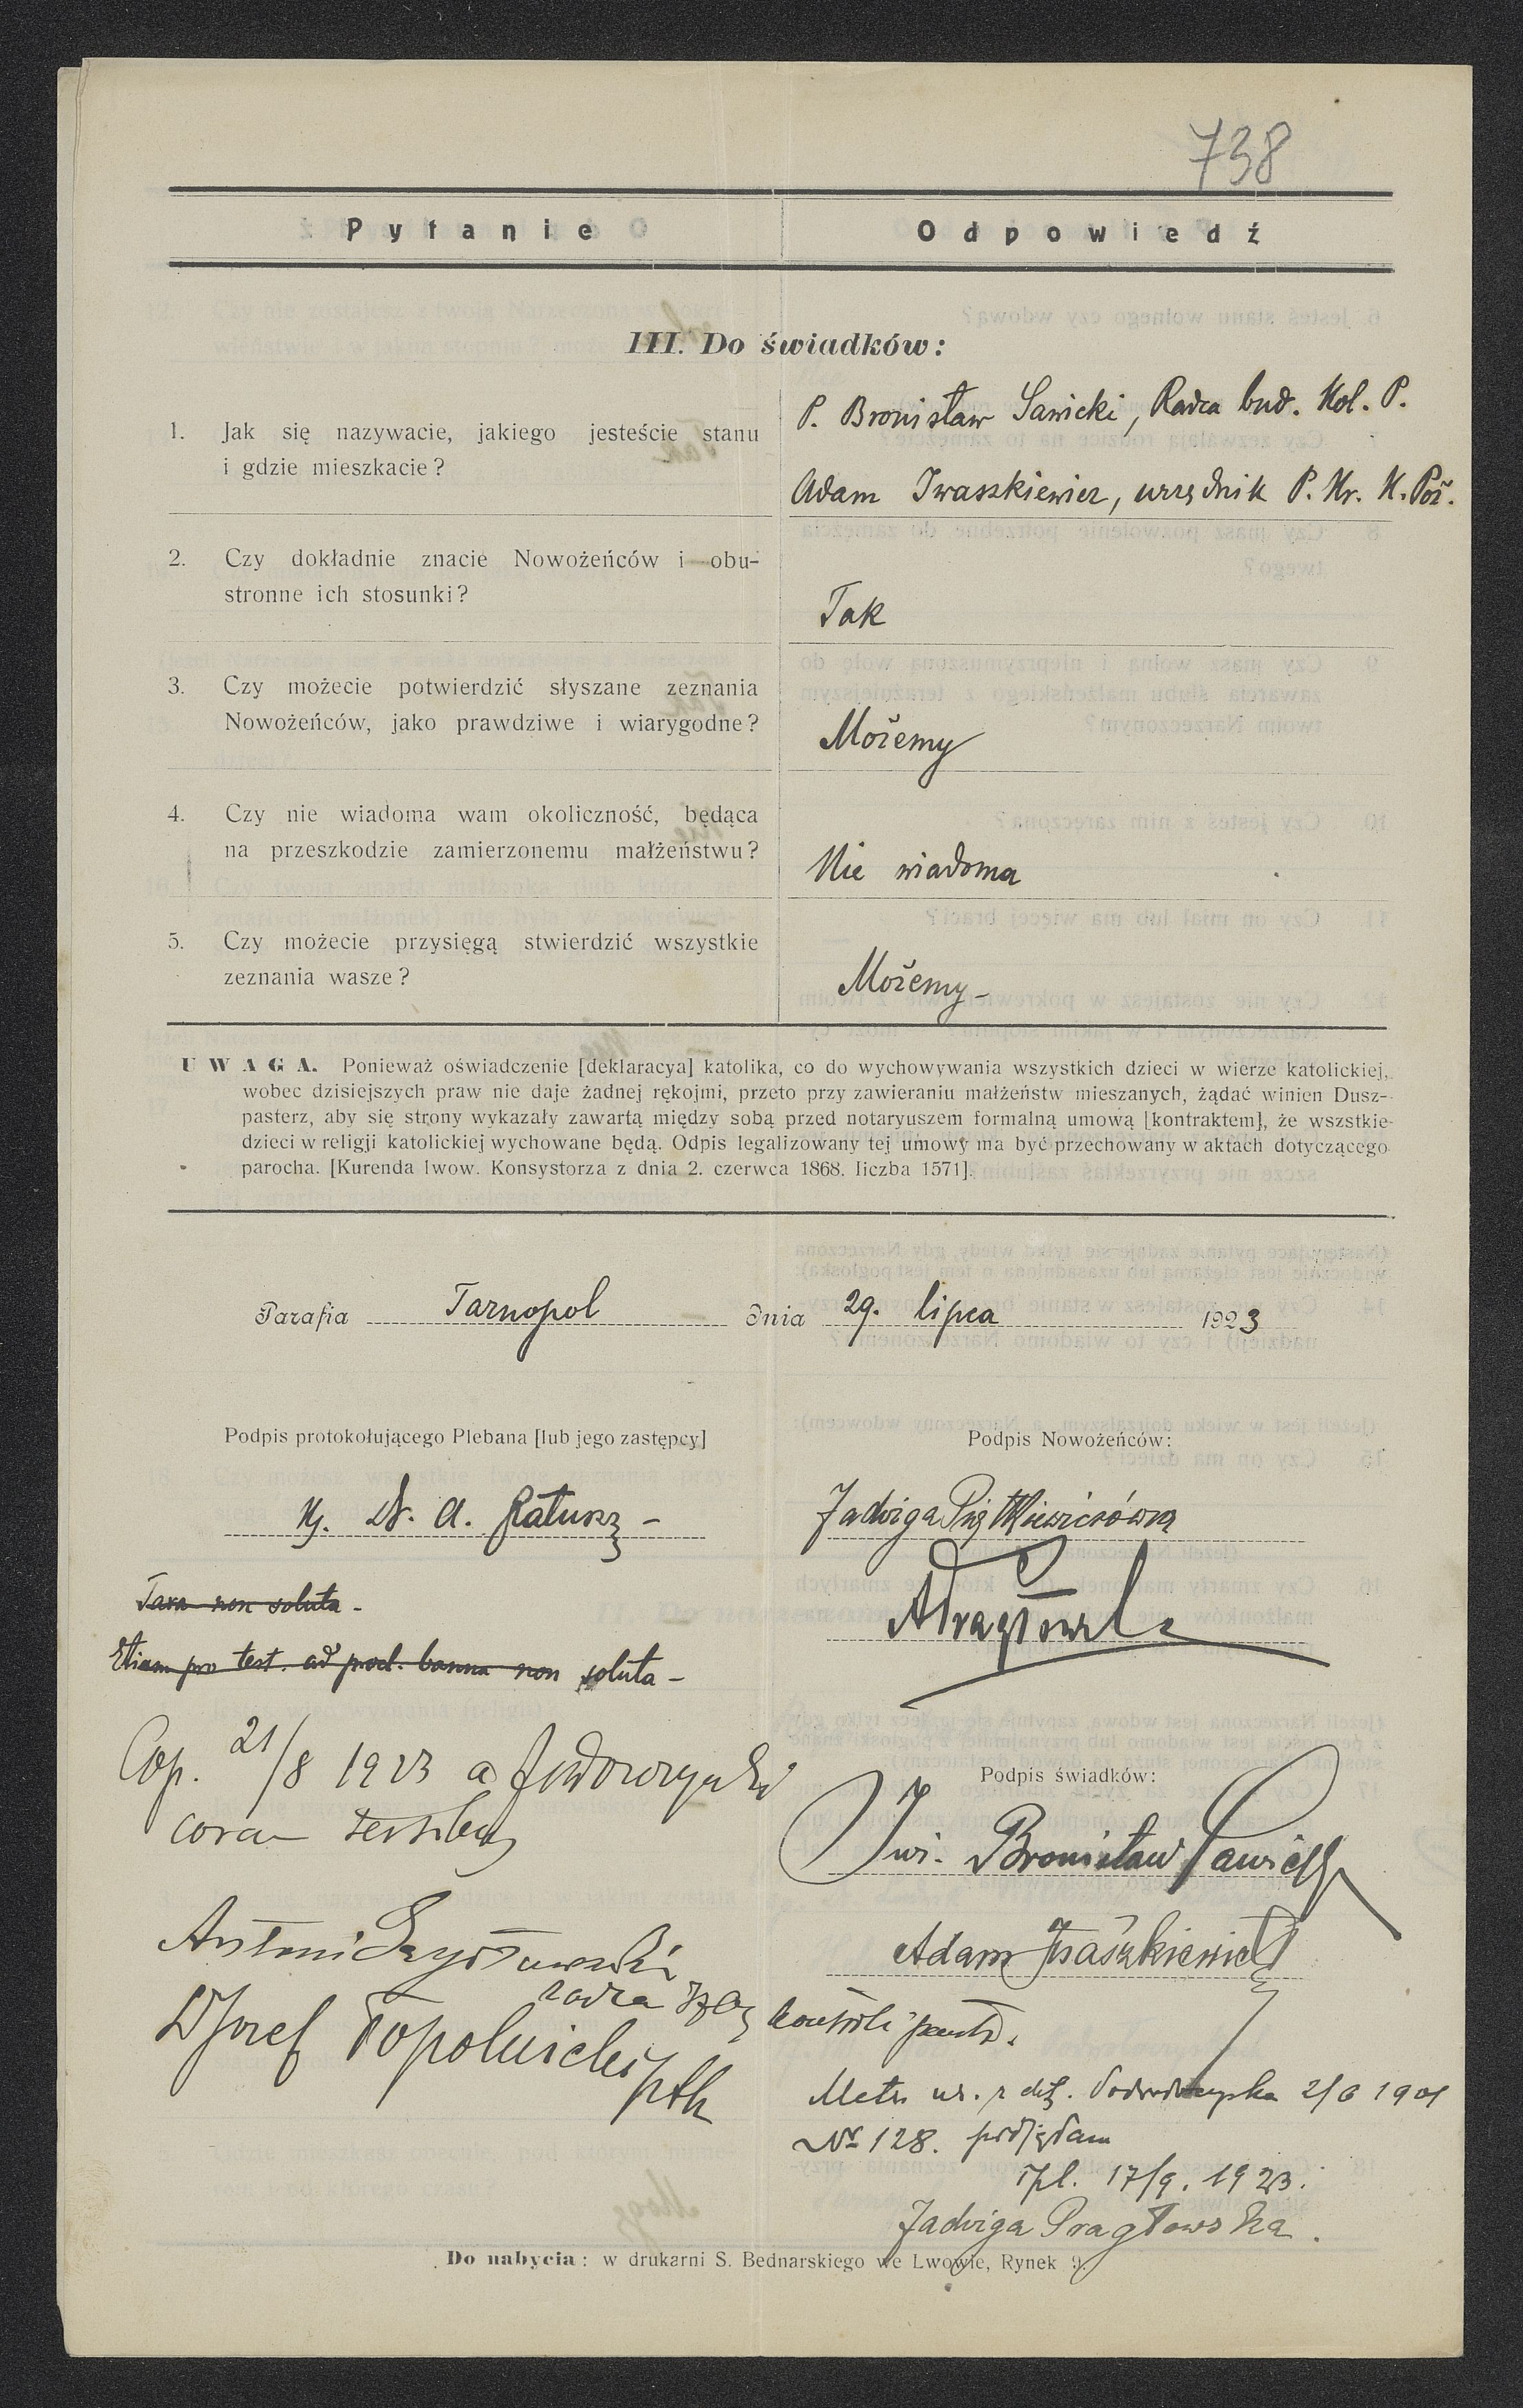 738
Pytanie
Odpowiedź
III. Do świadków:
1. Jak się nazywacie, jakiego jesteście stanu
i gdzie mieszkacie?
P. Bronisław Sawicki, Radca bud. Kol. P.
Adam Iwaszkiewicz, urzędnik P. Kr. K. Poż.
2. Czy dokładnie znacie Nowożeńców i obu-
stronne ich stosunki?
Tak
3. Czy możecie potwierdzić słyszane zeznania
Nowożeńców, jako prawdziwe i wiarygodne?
Możemy
4. Czy nie wiadoma wam okoliczność, będąca
na przeszkodzie zamierzonemu małżeństwu?
Nie wiadoma
5. Czy możecie przysięgą stwierdzić wszystkie
zeznania wasze?
Możemy –
UWAGA. Ponieważ oświadczenie [deklaracya] katolika, co do wychowywania wszystkich dzieci w wierze katolickiej,
wobec dzisiejszych praw nie daje żadnej rękojmi, przeto przy zawieraniu małżeństw mieszanych, żądać winien Dusz-
pasterz, aby się strony wykazały zawartą między sobą przed notaryuszem formalną umową [kontraktem], że wszstkie
dzieci w religji katolickiej wychowane będą. Odpis legalizowany tej umowy ma być przechowany w aktach dotyczącego
parocha. [Kurenda lwow. Konsystorza z dnia 2. czerwca 1868. liczba 1571].
Parafia Tarnopol dnia 29. lipca 1923
Podpis protokołującego Plebana [lub jego zastępcy]
Podpis Nowożeńców:
X. Dr. A. Ratusz –
Jadwiga Piątkiewiczówna
APragłowski
Taxa non soluta –
Etiam pro test. ad procl. banna non soluta –
Cop. 21/8 1923 a
coram testibus
Podpis świadków:
Inż. Bronisław Sawicki
Adam Iwaszkiewicz
Antoni
radca Izby kontroli państw.
Józef Topolnicki ppłk
Metr. ur. z dtg. Podwołoczyska 2/6 1901
№ 128. podjęłam
Tpl. 17/9. 1923.
Jadwiga Pragłowska.
Do nabycia: w drukarni S. Bednarskiego we Lwowie, Rynek 9.